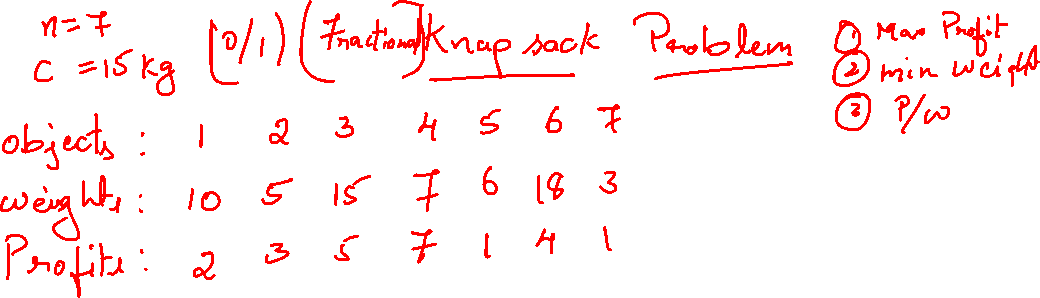 n=7 [0/1) (Fractional] Knapsack Problem
C =15 kg
① Max Profit
② min weight
③ P/w
objects : 1 2 3 4 5 6 7
weights : 10 5 15 7 6 18 3
Profits : 2 3 5 7 1 4 1